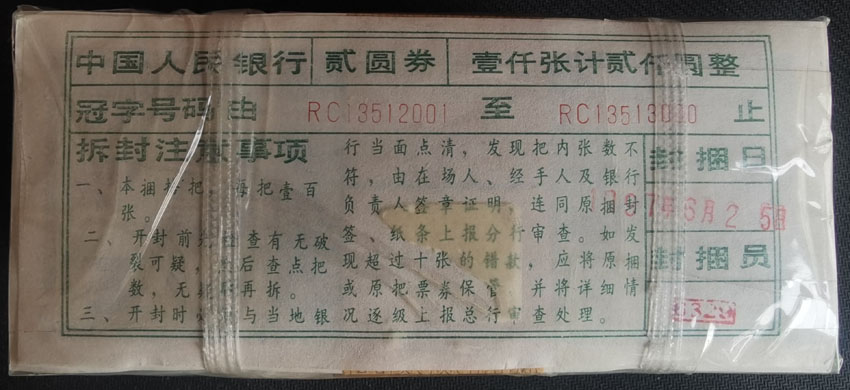 中国人民银行 贰圆券 壹仟张计贰仟圆整
冠字号码由 RC13512001 至 RC13513000 止
拆封注意事项
一、本捆拾把，每把壹百
张。
二、开封前先检查有无破
裂可疑，然后查点把
数，无疑再拆。
三、开封时必须与当地银
行当面点清，发现把内张数不
符，由在场人、经手人及银行
负责人签章证明，连同原捆封
签、纸条上报分行审查。如发
现超过十张的错款，应将原捆
或原把票券保管 并将详细情
况逐级上报总行审查处理。
封捆日
1997年6月25日
封捆员